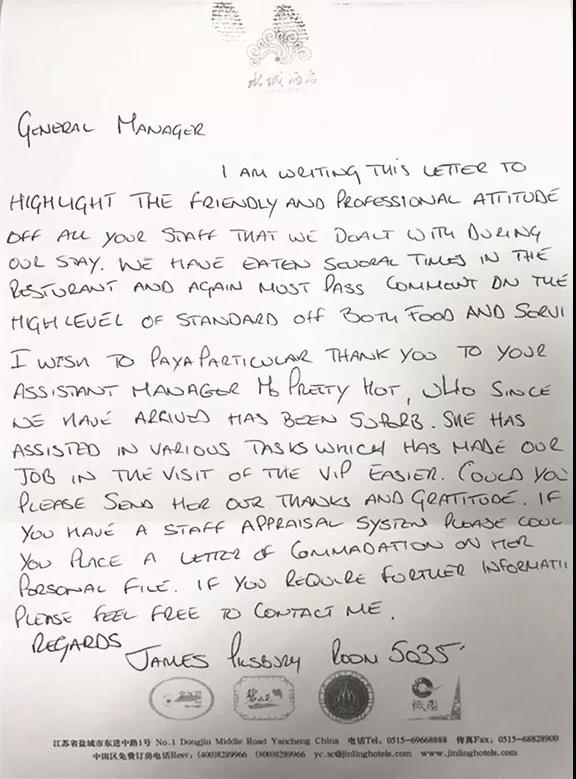 水城酒店
GENERAL MANAGER
I AM WRITING THIS LETTER TO
HIGHLIGHT THE FRIENDLY AND PROFESSIONAL ATTITUDE
OFF ALL YOUR STAFF THAT WE DEALT WITH DURING
OUR STAY. WE HAVE EATEN SEVERAL TIMES IN THE
RESTURANT AND AGAIN MUST PASS COMMENT ON THE
HIGH LEVEL OF STANDARD OFF BOTH FOOD AND SERVI
I WISH TO PAY A PARTICULAR THANK YOU TO YOUR
ASSISTANT MANAGER MS PRETTY HOT, WHO SINCE
WE HAVE ARRIVED HAS BEEN SUPERB. SHE HAS
ASSISTED IN VARIOUS TASKS WHICH HAS MADE OUR
JOB IN THE VISIT OF THE VIP EASIER. COULD YOU
PLEASE SEND HER OUR THANKS AND GRATITUDE. IF
YOU HAVE A STAFF APPRAISAL SYSTEM PLEASE COUL
YOU PLACE A LETTER OF COMMADATION ON HER
PERSONAL FILE. IF YOU REQUIRE FURTHER INFORMATI
PLEASE FEEL FREE TO CONTACT ME.
REGARDS
JAMES ROOM 5035
江苏省盐城市东进中路1号 No.1 Dongjin Middle Road Yancheng China 电话Tel: 0515-69668888 传真Fax: 0515-68828900
中国区免费订房电话Resv: (400)8289966 (800)8289966 yc.sc@jinlinghotels.com www.jinlinghotels.com